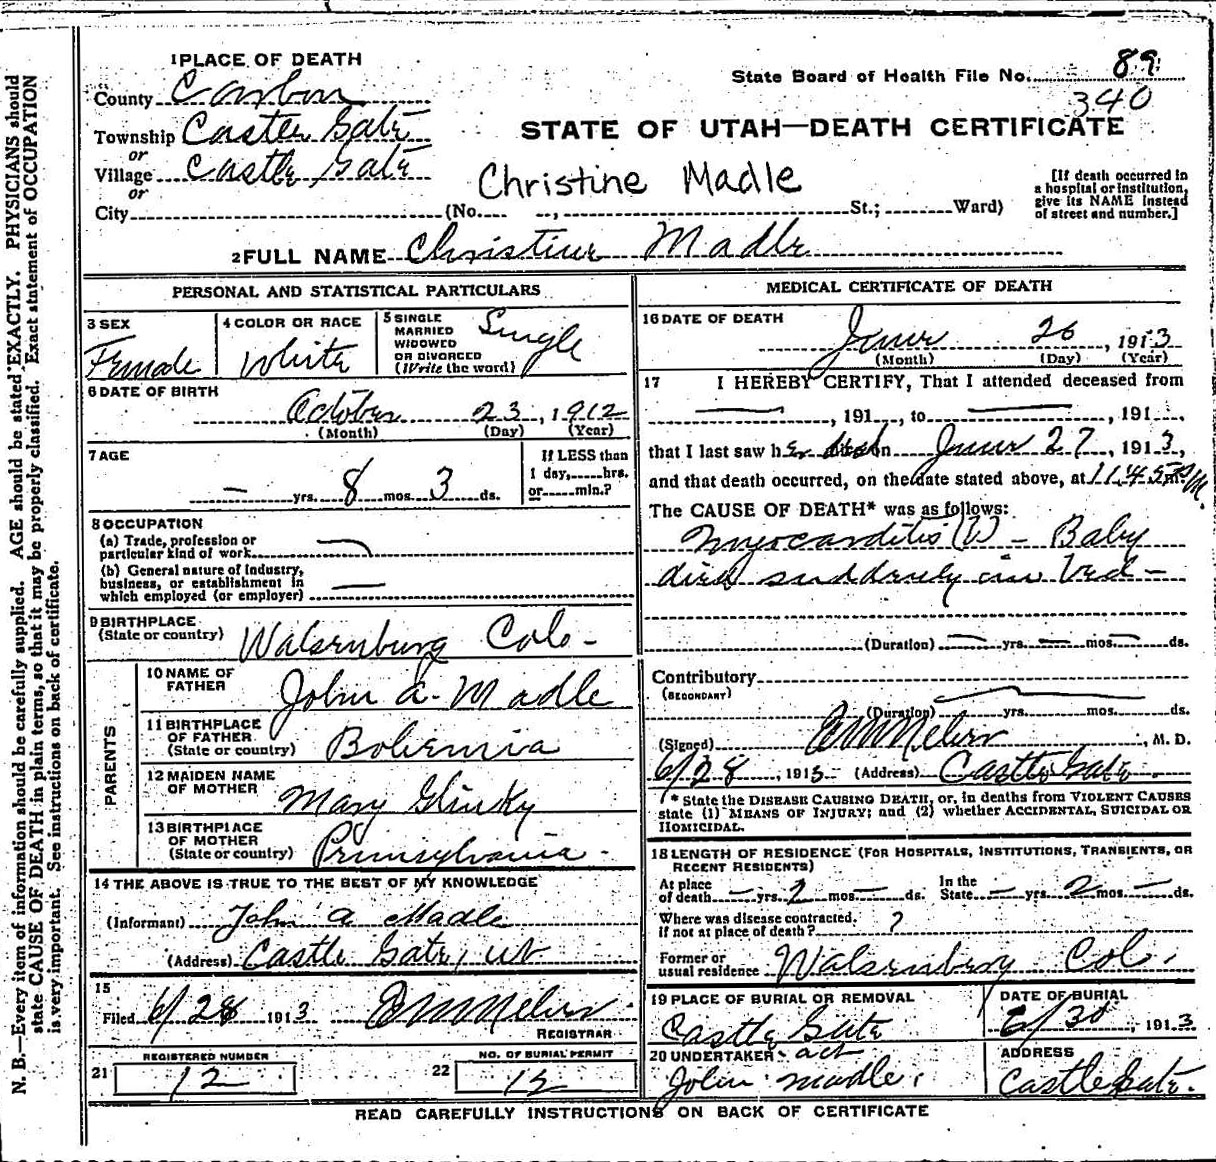 1 PLACE OF DEATH
State Board of Health File No. 89
340
County Carbon
Township Castle Gate
or
Village Castle Gate
or
STATE OF UTAH—DEATH CERTIFICATE
Christine Madle
[If death occurred in a hospital or institution, give its NAME instead of street and number.]
City (No. , St.; Ward)
2 FULL NAME Christine Madle
PERSONAL AND STATISTICAL PARTICULARS
3 SEX
Female
4 COLOR OR RACE
White
5 SINGLE
MARRIED
WIDOWED
OR DIVORCED
(Write the word)
Single
6 DATE OF BIRTH
October 23, 1912
(Month) (Day) (Year)
7 AGE
— yrs. 8 mos. 3 ds.
If LESS than
1 day, hrs.
or min.?
8 OCCUPATION
(a) Trade, profession or
particular kind of work
(b) General nature of industry,
business, or establishment in
which employed (or employer) —
9 BIRTHPLACE
(State or country) Walsenburg Colo-
PARENTS
10 NAME OF
FATHER John A. Madle
11 BIRTHPLACE
OF FATHER
(State or country) Bohemia
12 MAIDEN NAME
OF MOTHER Mary Glinky
13 BIRTHPLACE
OF MOTHER
(State or country) Pennsylvania -
14 THE ABOVE IS TRUE TO THE BEST OF MY KNOWLEDGE
(Informant) John A Madle
(Address) Castle Gate, Ut
15
Filed 6/28 1913
REGISTRAR
21 REGISTERED NUMBER
12
22 NO. OF BURIAL PERMIT
12
MEDICAL CERTIFICATE OF DEATH
16 DATE OF DEATH
June 26, 1913
(Month) (Day) (Year)
17 I HEREBY CERTIFY, That I attended deceased from
—, 191 , to —, 191 ,
that I last saw her dead on June 27, 1913,
and that death occurred, on the date stated above, at 1145 m.
The CAUSE OF DEATH* was as follows:
Myocarditis (?) - Baby
died suddenly in bed -
(Duration) — yrs. — mos. — ds.
Contributory
(SECONDARY)
(Duration) yrs. mos. ds.
(Signed) , M. D.
6/28, 1913 (Address) Castle Gate
* State the DISEASE CAUSING DEATH, or, in deaths from VIOLENT CAUSES
state (1) MEANS OF INJURY; and (2) whether ACCIDENTAL, SUICIDAL OR
HOMICIDAL.
18 LENGTH OF RESIDENCE (FOR HOSPITALS, INSTITUTIONS, TRANSIENTS, OR
RECENT RESIDENTS)
At place
of death — yrs. 2 mos. — ds.
In the
State — yrs. 2 mos. — ds.
Where was disease contracted.
if not at place of death? ?
Former or
usual residence Walsenburg Col.
19 PLACE OF BURIAL OR REMOVAL
Castle Gate
DATE OF BURIAL
6/30, 1913
20 UNDERTAKER act
John Madle.
ADDRESS
Castle Gate.
READ CAREFULLY INSTRUCTIONS ON BACK OF CERTIFICATE
N. B.—Every item of information should be carefully supplied. AGE should be stated EXACTLY. PHYSICIANS should
state CAUSE OF DEATH in plain terms, so that it may be properly classified. Exact statement of OCCUPATION
is very important. See instructions on back of certificate.